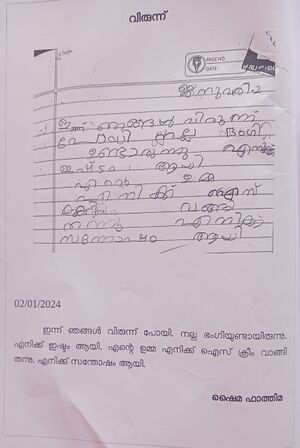 വിരുന്ന്
PAGE NO
DATE:
ജനുവരി-2
ഇന്ന് ഞങ്ങൾ വിരുന്ന്
ഇഷ്ടം ആയി
എന്റെ ഉമ്മ
എനിക്ക് ഐസ്
വാങ്ങി
തന്നു എനിക്ക്
സന്തോഷം ആയി
02/01/2024
ഇന്ന് ഞങ്ങൾ വിരുന്ന് പോയി. നല്ല ഭംഗിയുണ്ടായിരുന്നു.
എനിക്ക് ഇഷ്ടം ആയി. എന്റെ ഉമ്മ എനിക്ക് ഐസ് ക്രീം വാങ്ങി
തന്നു. എനിക്ക് സന്തോഷം ആയി.
ഷൈമ ഫാത്തിമ